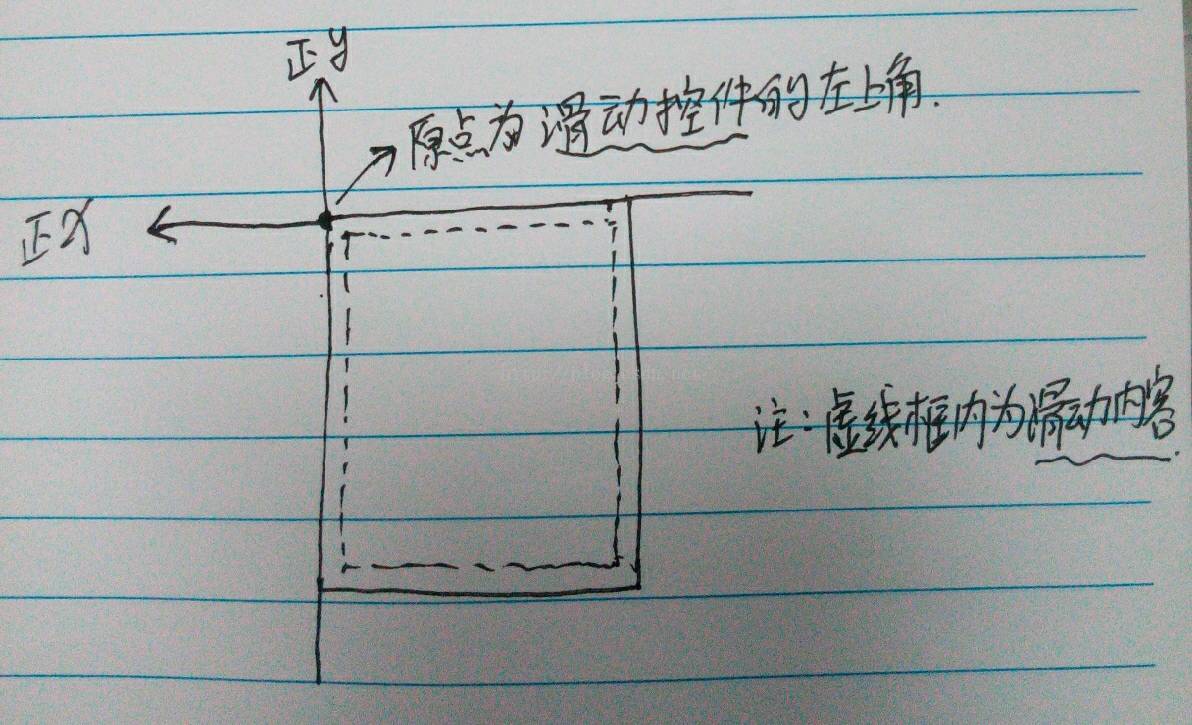 正y
原点为滑动控件的左上角.
正x
注:虚线框内为滑动内容.